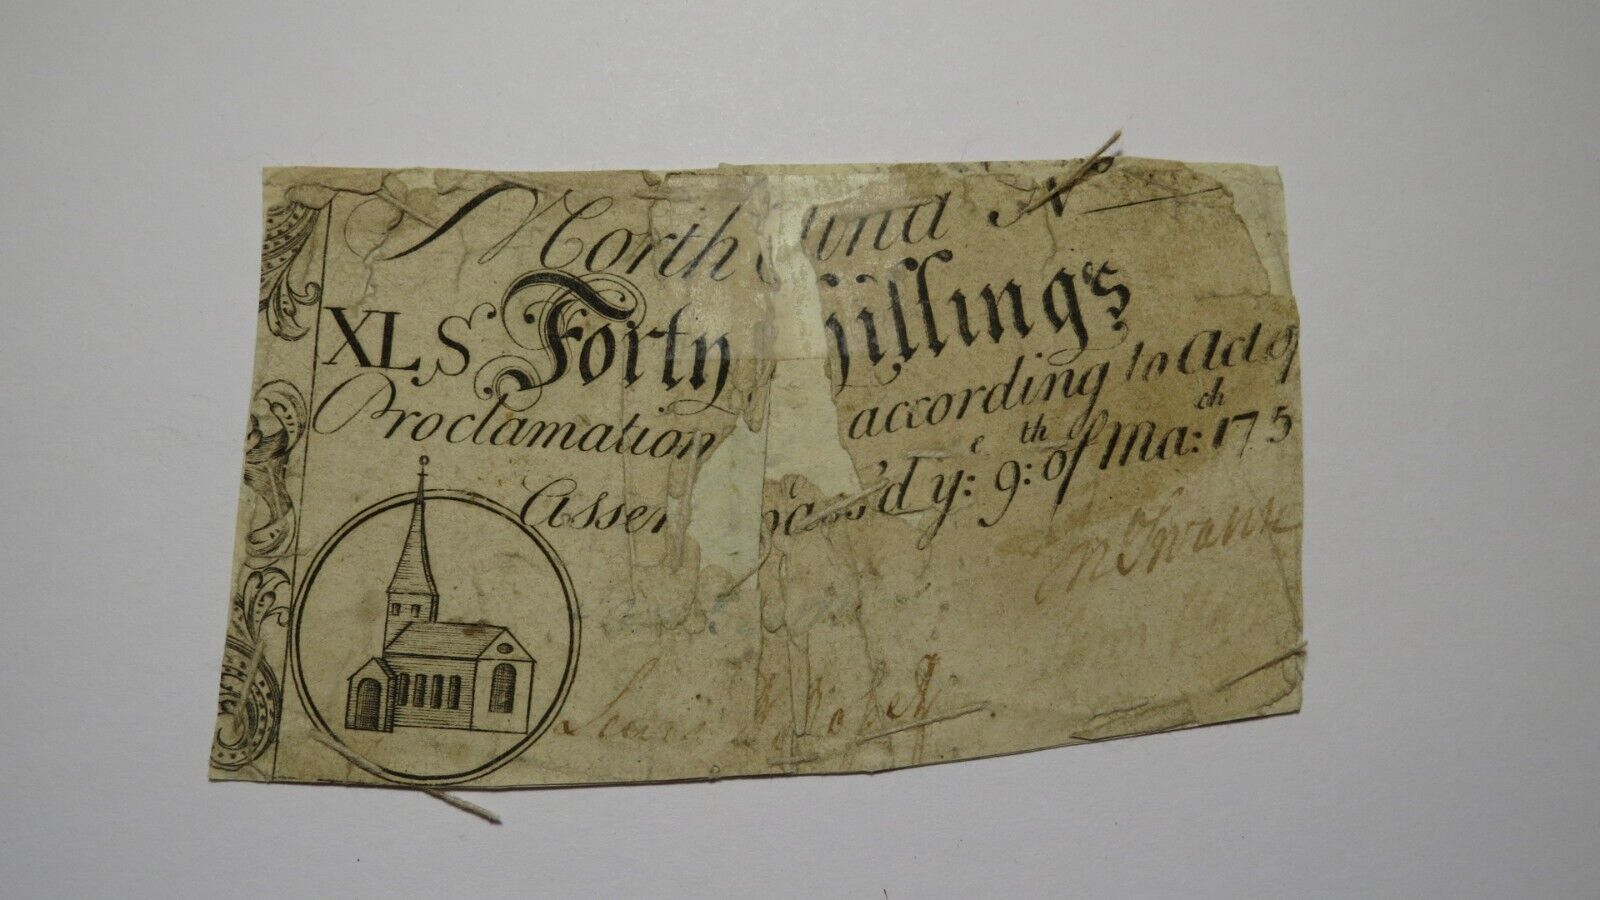 North lina No
XL,S Forty hillings
Proclamation according to Act of
Assem pass'd ye: 9:th of Ma:ch 175
Jn Swann
Lewis De